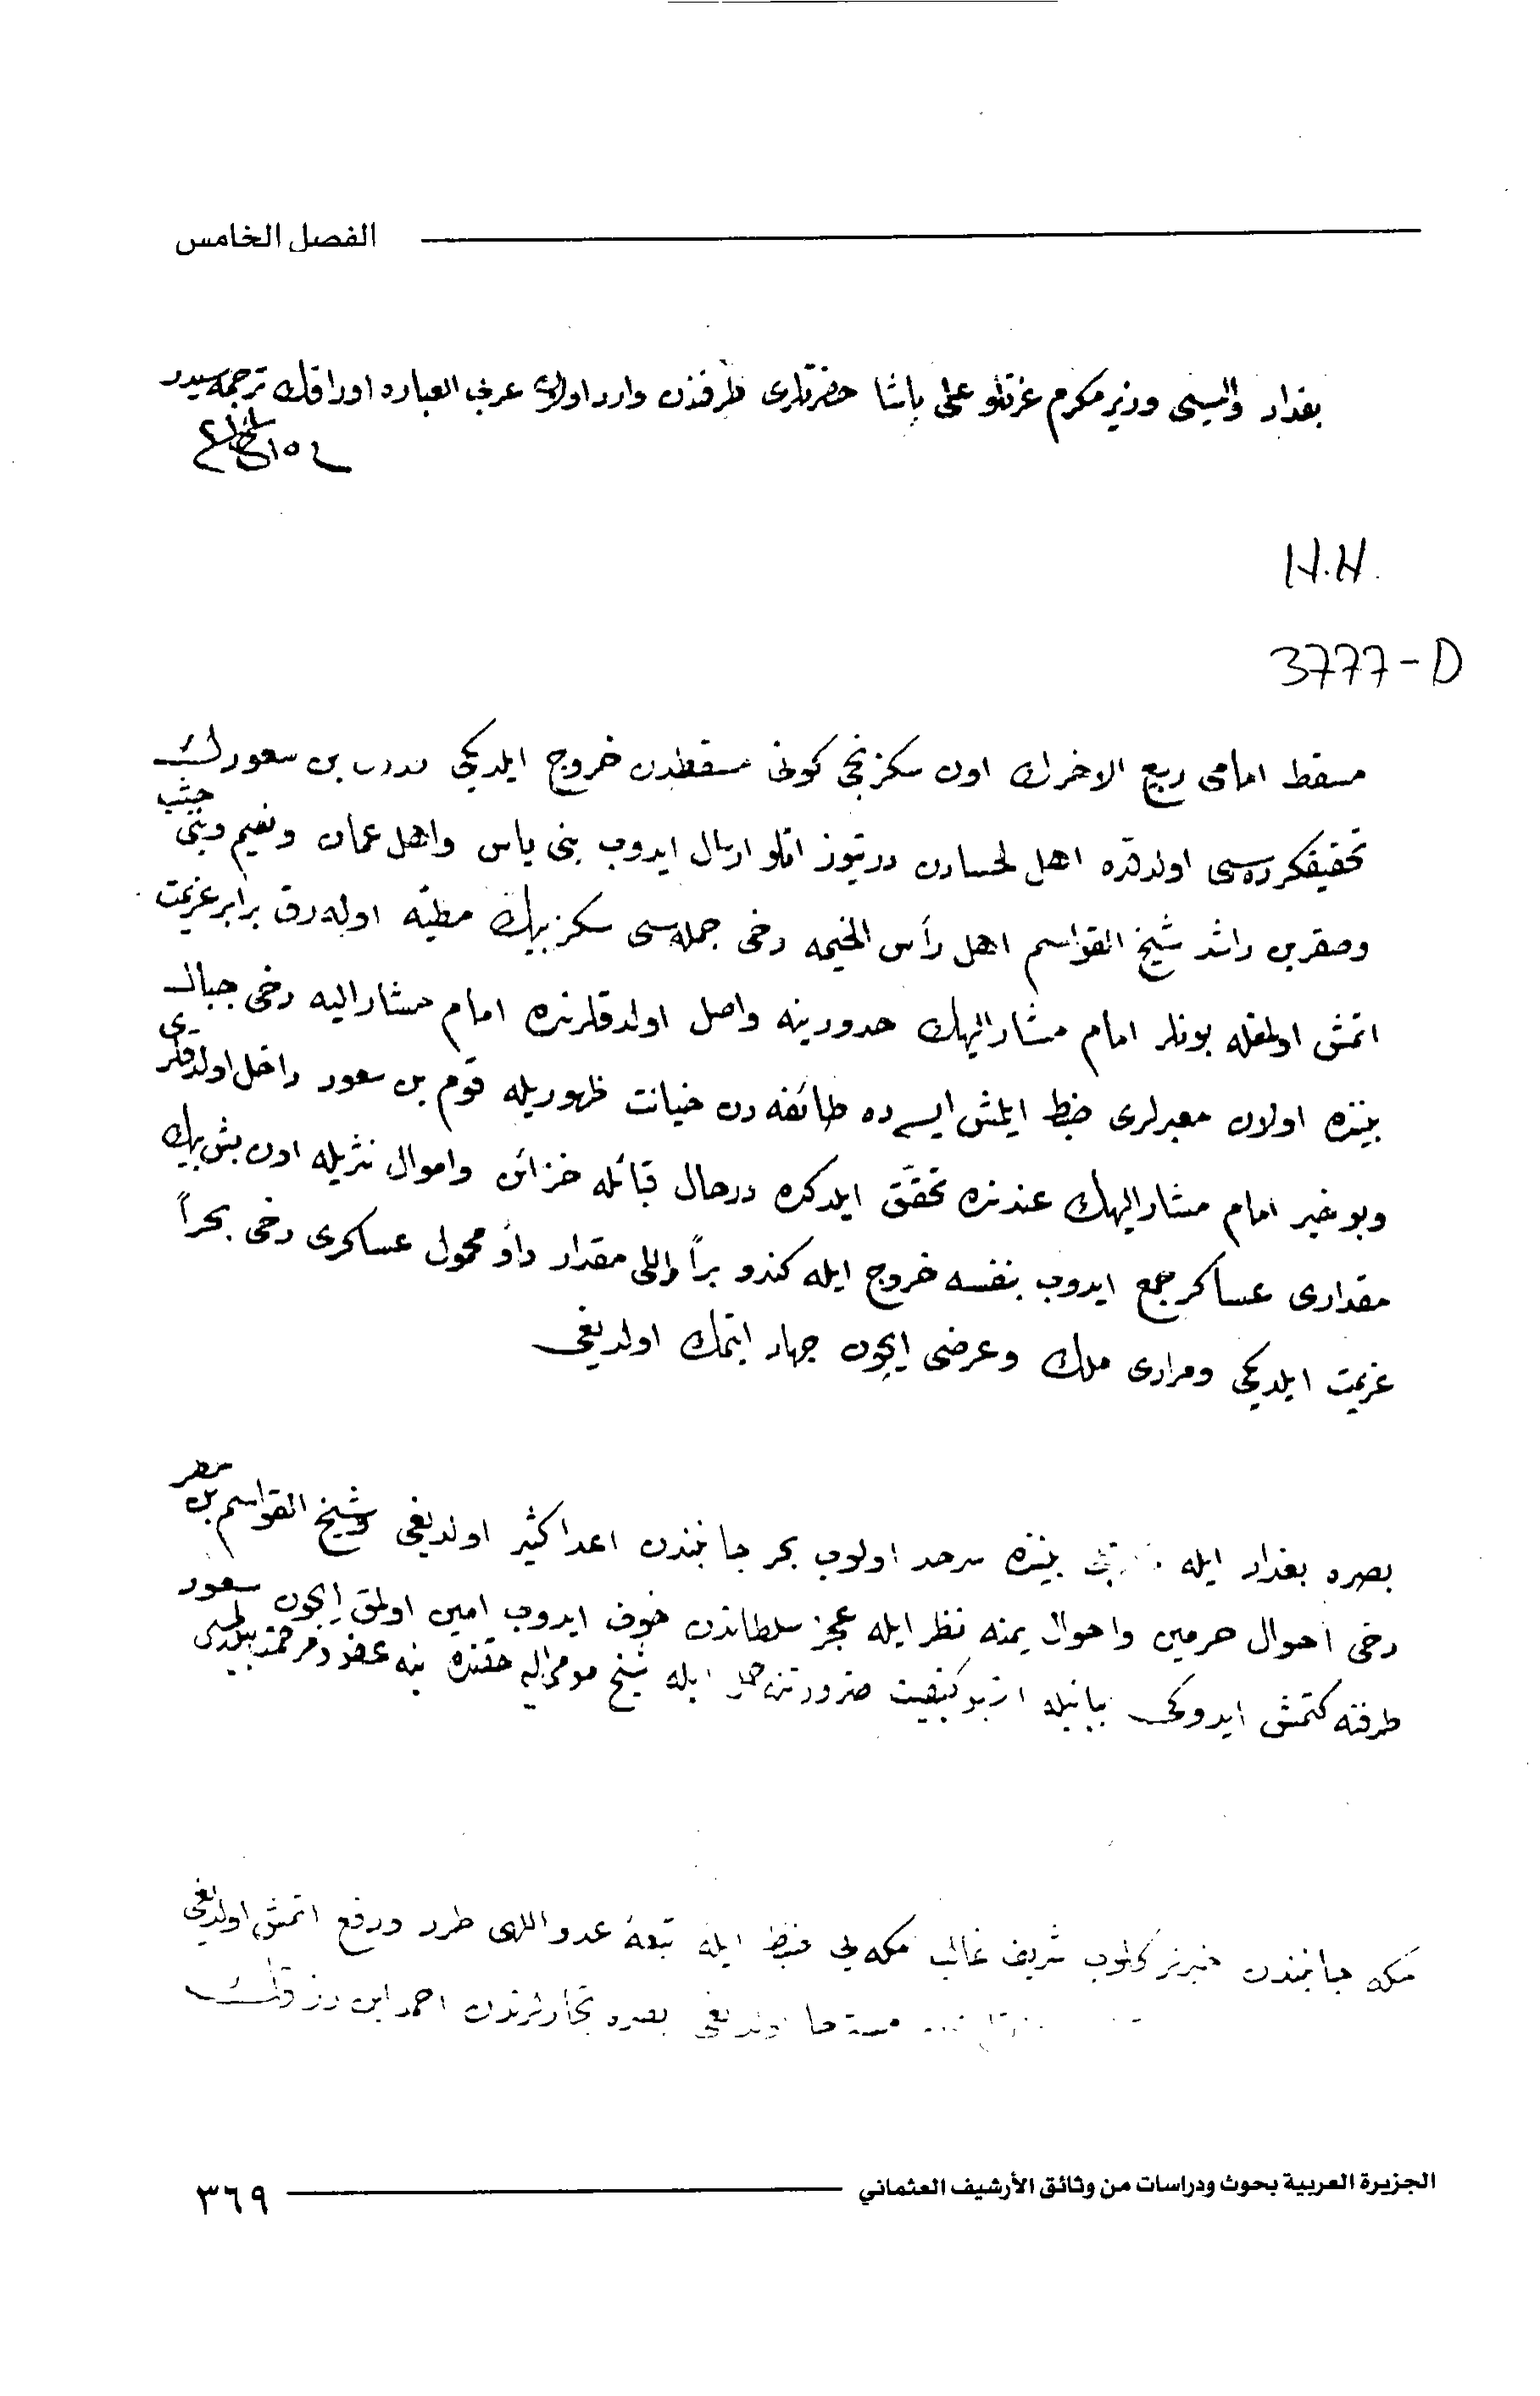 الفصل الخامس
بغداد والیسی وزیر مکرم عزتلو علی پاشا حضرتلری طرفندن وارد اولان عربی العباره اوراقك ترجمه سیدر
H.H.
3777-D
مسقط امامی ربیع الاخرك اون سکزنجی کونی مسقطدن خروج ایلدیکی بن سعودك
تحقیقکرده سی اولدقده اهل لحسادن درتیوز اتلو ارسال ایدوب بنی یاس واهل عمان ونعیم وبنی
وصقر بن راشد شیخ القواسم اهل رأس الخیمه دخی جمله سی سکز بیك مطیه اوله رق برابر عزیمت
اتمش اولمغله بونلر امام مشار الیهك حدودینه واصل اولدقلرنده امام مشار الیه دخی جبال
بیننده اولان معبرلری ضبط ایلمش ایسه ده طائفه دن خیانت ظهوریله قوم بن سعود داخل اولدقلری
وبو خبر امام مشار الیهك عندنده تحقق ایلدکده درحال قبائله خزائن واموال نثریله اون بش بیك
مقداری عساکر جمع ایدوب بنفسه خروج ایله کندو براً واللی مقدار داو محمول عسکری دخی بحراً
عزیمت ایلدیکی ومرادی ملك وعرضی ایچون جهاد ایتمك اولدیغی
بصره بغداد ایله بیننده سرحد اولوب بحر جانبندن اعدا کثیر اولدیغی وشیخ القواسم بن صقر
دخی احوال حرمین واحوال یمنه نظر ایله عجز سلطاندن خوف ایدوب امین اولمق ایچون سعود
طرفنه کتمش ایدوکی بیانیله اشبو کیفیت ضرورتنه حمل ایله شیخ مومی الیه حقنده ینه عفو ومرحمت
مکه جانبندن خبرلر کلوب شریف غالب مکه یی ضبط ایله تبعهٔ عدو اللهی طرد ودفع اتمش اولدیغی
بصره تجارلرندن احمد ابن رزقك
الجزيرة العربية بحوث ودراسات من وثائق الأرشيف العثماني
٣٦٩